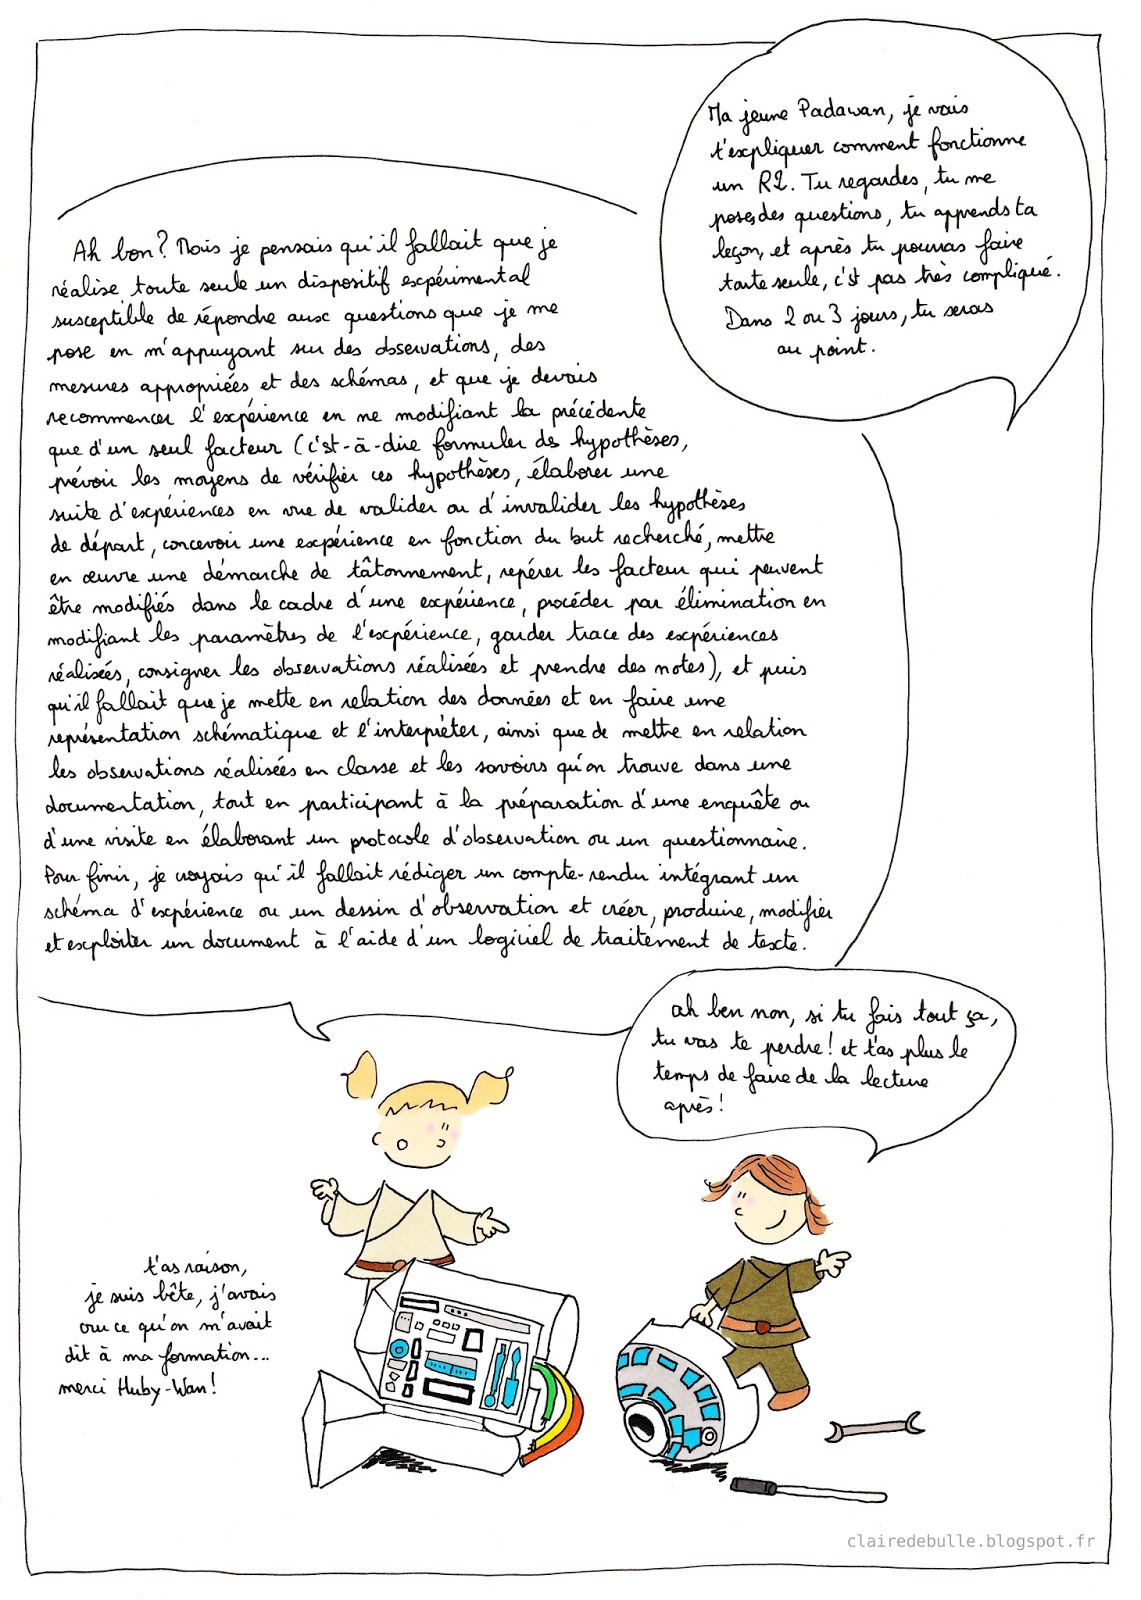 Ma jeune Padawan, je vais
t'expliquer comment fonctionne
un R2. Tu regardes, tu me
poses des questions, tu apprends ta
leçon, et après tu pourras faire
toute seule, c'est pas très compliqué.
Dans 2 ou 3 jours, tu seras
au point.
Ah bon? Mais je pensais qu'il fallait que je
réalise toute seule un dispositif expérimental
susceptible de répondre aux questions que je me
pose en m'appuyant sur des observations, des
mesures appropriées et des schémas, et que je devais
recommencer l'expérience en ne modifiant la précédente
que d'un seul facteur (c'est-à-dire formuler des hypothèses,
prévoir les moyens de vérifier ces hypothèses, élaborer une
suite d'expériences en vue de valider ou d'invalider les hypothèses
de départ, concevoir une expérience en fonction du but recherché, mettre
en œuvre une démarche de tâtonnement, repérer les facteur qui peuvent
être modifiés dans le cadre d'une expérience, procéder par élimination en
modifiant les paramètres de l'expérience, garder trace des expériences
réalisées, consigner les observations réalisées et prendre des notes), et puis
qu'il fallait que je mette en relation des données et en faire une
représentation schématique et l'interpréter, ainsi que de mettre en relation
les observations réalisées en classe et les savoirs qu'on trouve dans une
documentation, tout en participant à la préparation d'une enquête ou
d'une visite en élaborant un protocole d'observation ou un questionnaire.
Pour finir, je croyais qu'il fallait rédiger un compte-rendu intégrant un
schéma d'expérience ou un dessin d'observation et créer, produire, modifier
et exploiter un document à l'aide d'un logiciel de traitement de texte.
ah ben non, si tu fais tout ça,
tu vas te perdre! et t'as plus le
temps de faire de la lecture
après!
t'as raison,
je suis bête, j'avais
cru ce qu'on m'avait
dit à ma formation...
merci Huby-Wan!
clairedebulle.blogspot.fr